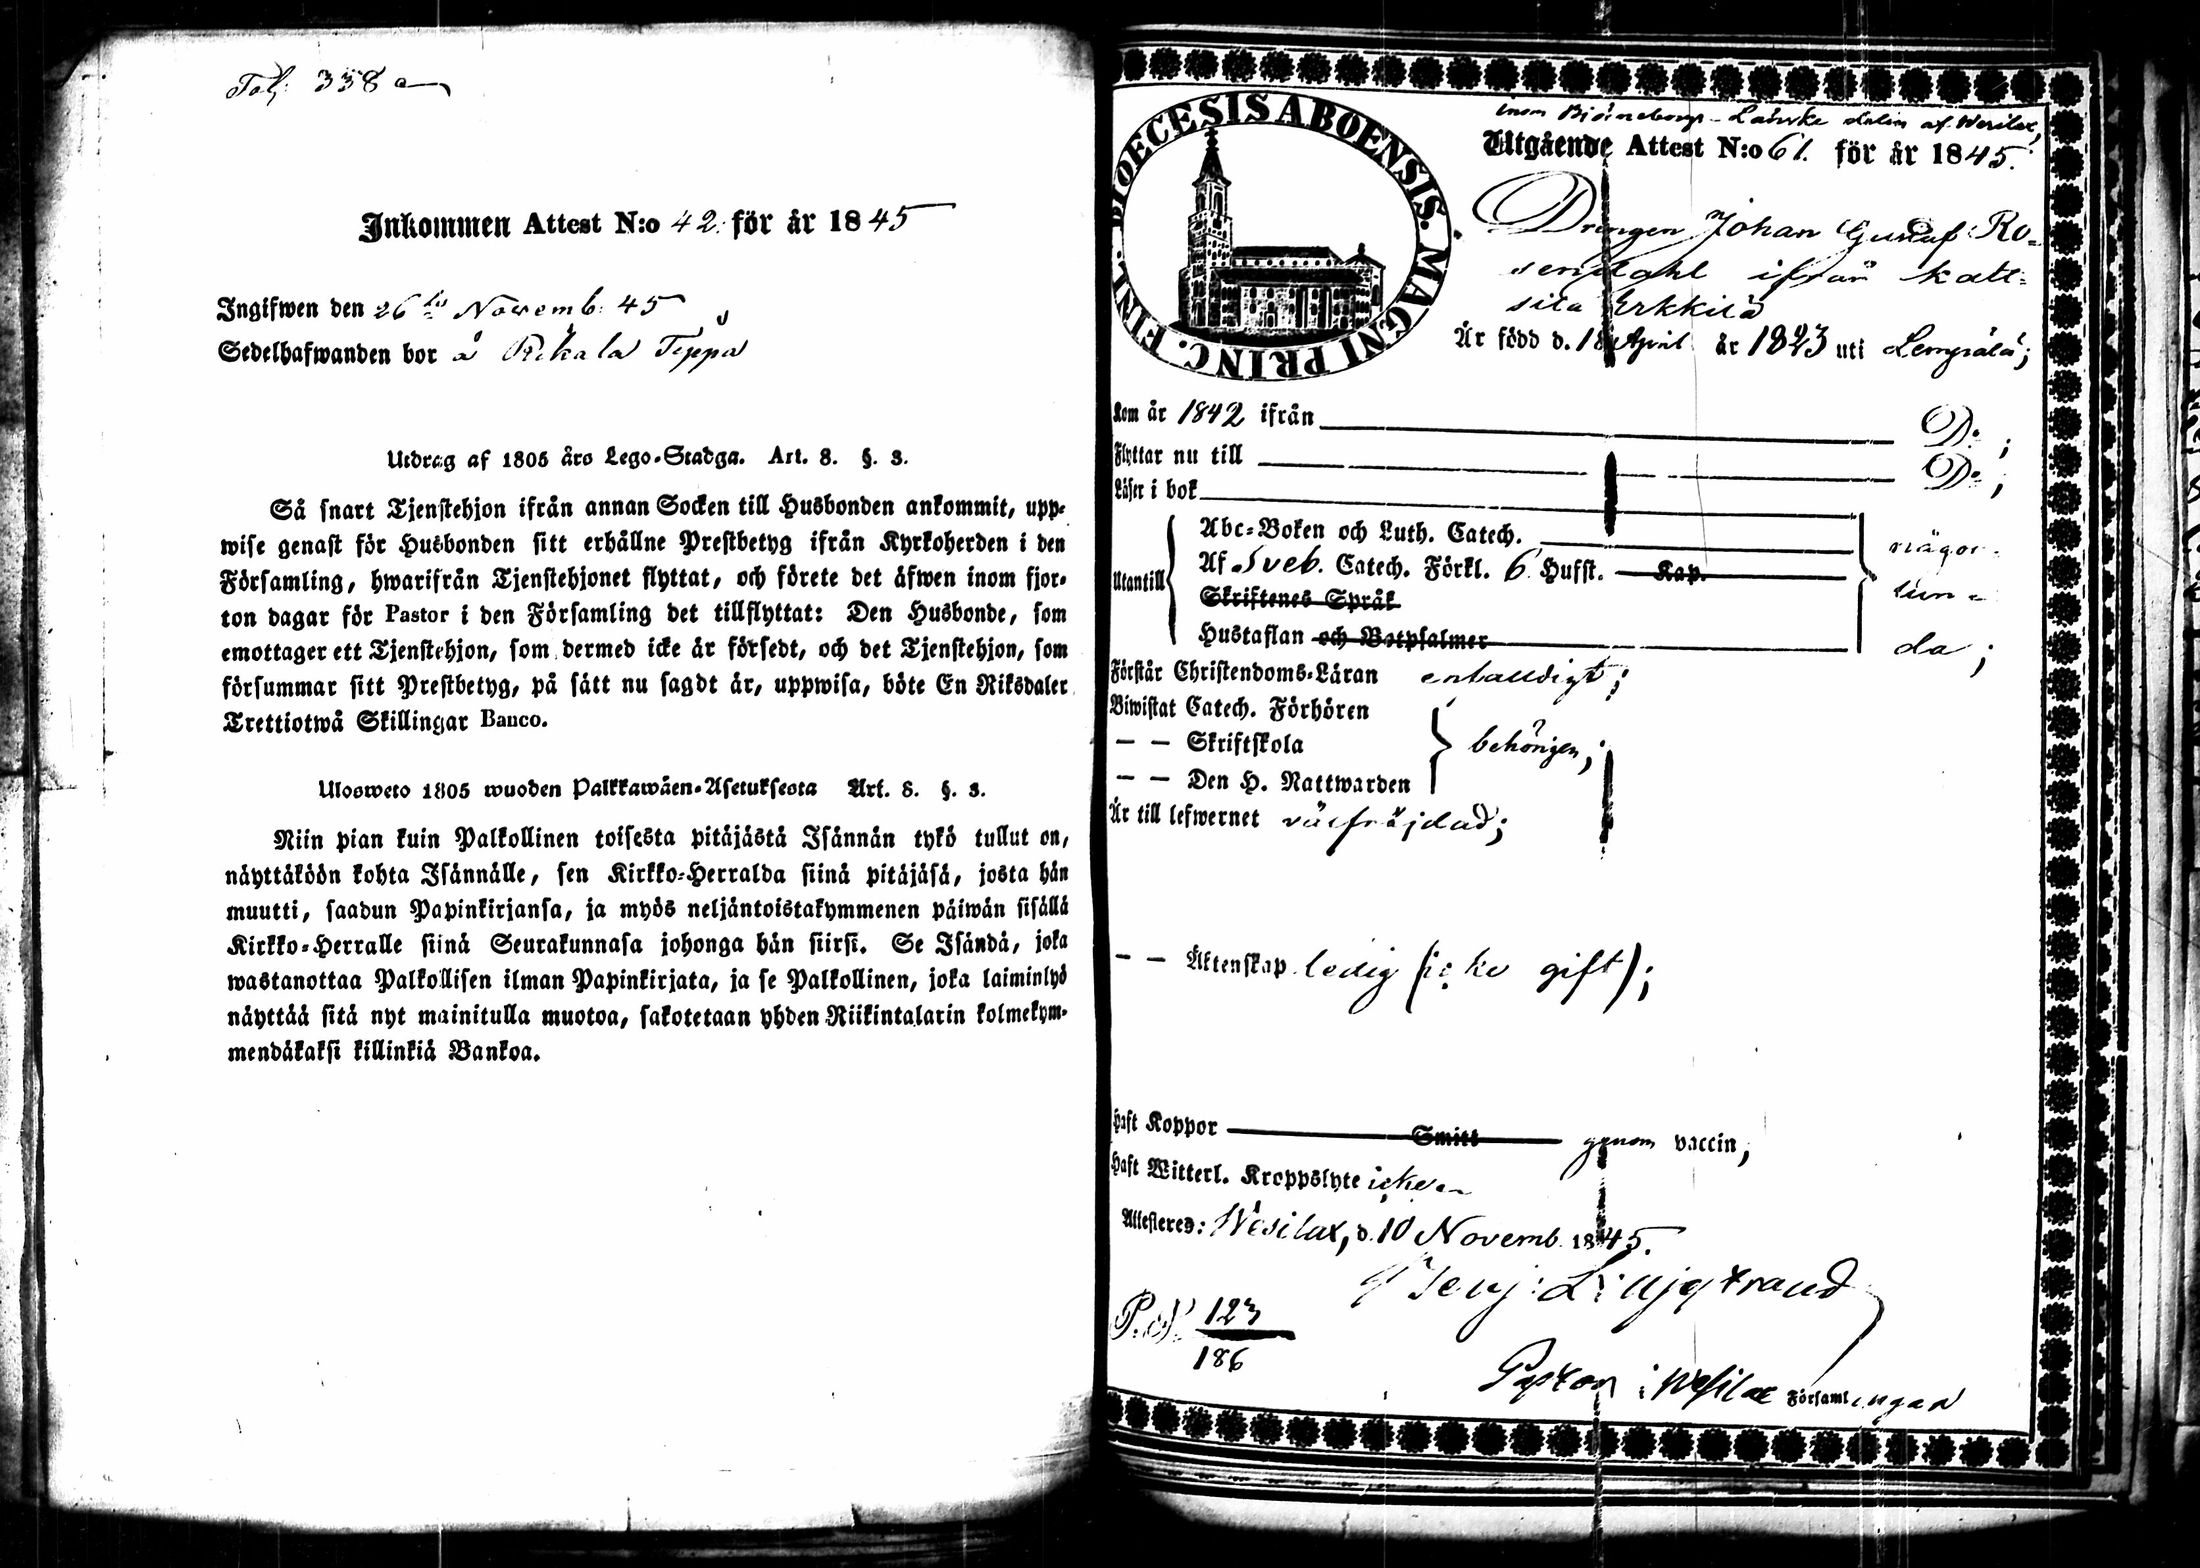 Fol. 358 a
Inkommen Attest N:o 42. för år 1845
Ingifwen den 26 te Novemb. 45
Sedelhafwanden bor å Rikala Töppå
Utdrag af 1805 års Lego-Stadga. Art. 8. §. 3.
Så snart Tjenstehjon ifrån annan Socken till Husbonden ankommit, upp-
wise genast för Husbonden sitt erhållne Prestbetyg ifrån Kyrkoherden i den
Församling, hwarifrån Tjenstehjonet flyttat, och förete det äfwen inom fjor-
ton dagar för Pastor i den Församling det tillflyttat: Den Husbonde, som
emottager ett Tjenstehjon, som dermed icke är försedt, och det Tjenstehjon, som
försummar sitt Prestbetyg, på sätt nu sagdt är, uppwisa, böte En Riksdaler
Trettiotwå Skillingar Banco.
Ulosweto 1805 wuoden Palkkawäen-Asetuksesta Art. 8. §. 3.
Niin pian kuin Palkollinen toisesta pitäjästä Isännän tykö tullut on,
näyttäköön kohta Isännälle, sen Kirkko-Herralda siinä pitäjäsä, josta hän
muutti, saadun Papinkirjansa, ja myös neljäntoistakymmenen päiwän sisällä
Kirkko-Herralle siinä Seurakunnasa johonga hän siirsi. Se Isändä, joka
wastanottaa Palkollisen ilman Papinkirjata, ja se Palkollinen, joka laiminlyö
näyttää sitä nyt mainitulla muotoa, sakotetaan yhden Riikintalarin kolmekym-
mendäkaksi killinkiä Bankoa.
DIOECESIS ABOENSIS. MAGNI PRINC. FINL.
inom Björneborgs Länske delen af Wesilax,
Utgående Attest N:o 61. för år 1845.
Drengen Johan Gustaf Ro-
sendahl ifrån Katt-
sila Erkkilä
Är född d. 18 April år 1823 uti Lempäälä;
Kom år 1842 ifrån D:o ;
Flyttar nu till D:o ;
Läser i bok
Utantill
Abc-Boken och Luth. Catech.
Af Sveb. Catech. Förkl. 6. Hufst. Kap.
Skriftenes Språk
Hustaflan och Botpsalmer
någor-
lun-
da ;
Förstår Christendoms-Läran enfaldigt;
Biwistat Catech. Förhören
— — Skriftskola behörigen;
— — Den H. Nattwarden
Är till lefwernet välfräjdad;
— — Äktenskap ledig (icke gift);
Haft Koppor Smitt genom vaccin,
Haft Witterl. Kroppslyte icke
Attesteres: Wesilax, d. 10 Novemb. 1845.
Benj: Liljestrand
P. N. 123
186
Pastor i Wesilax Församlingar